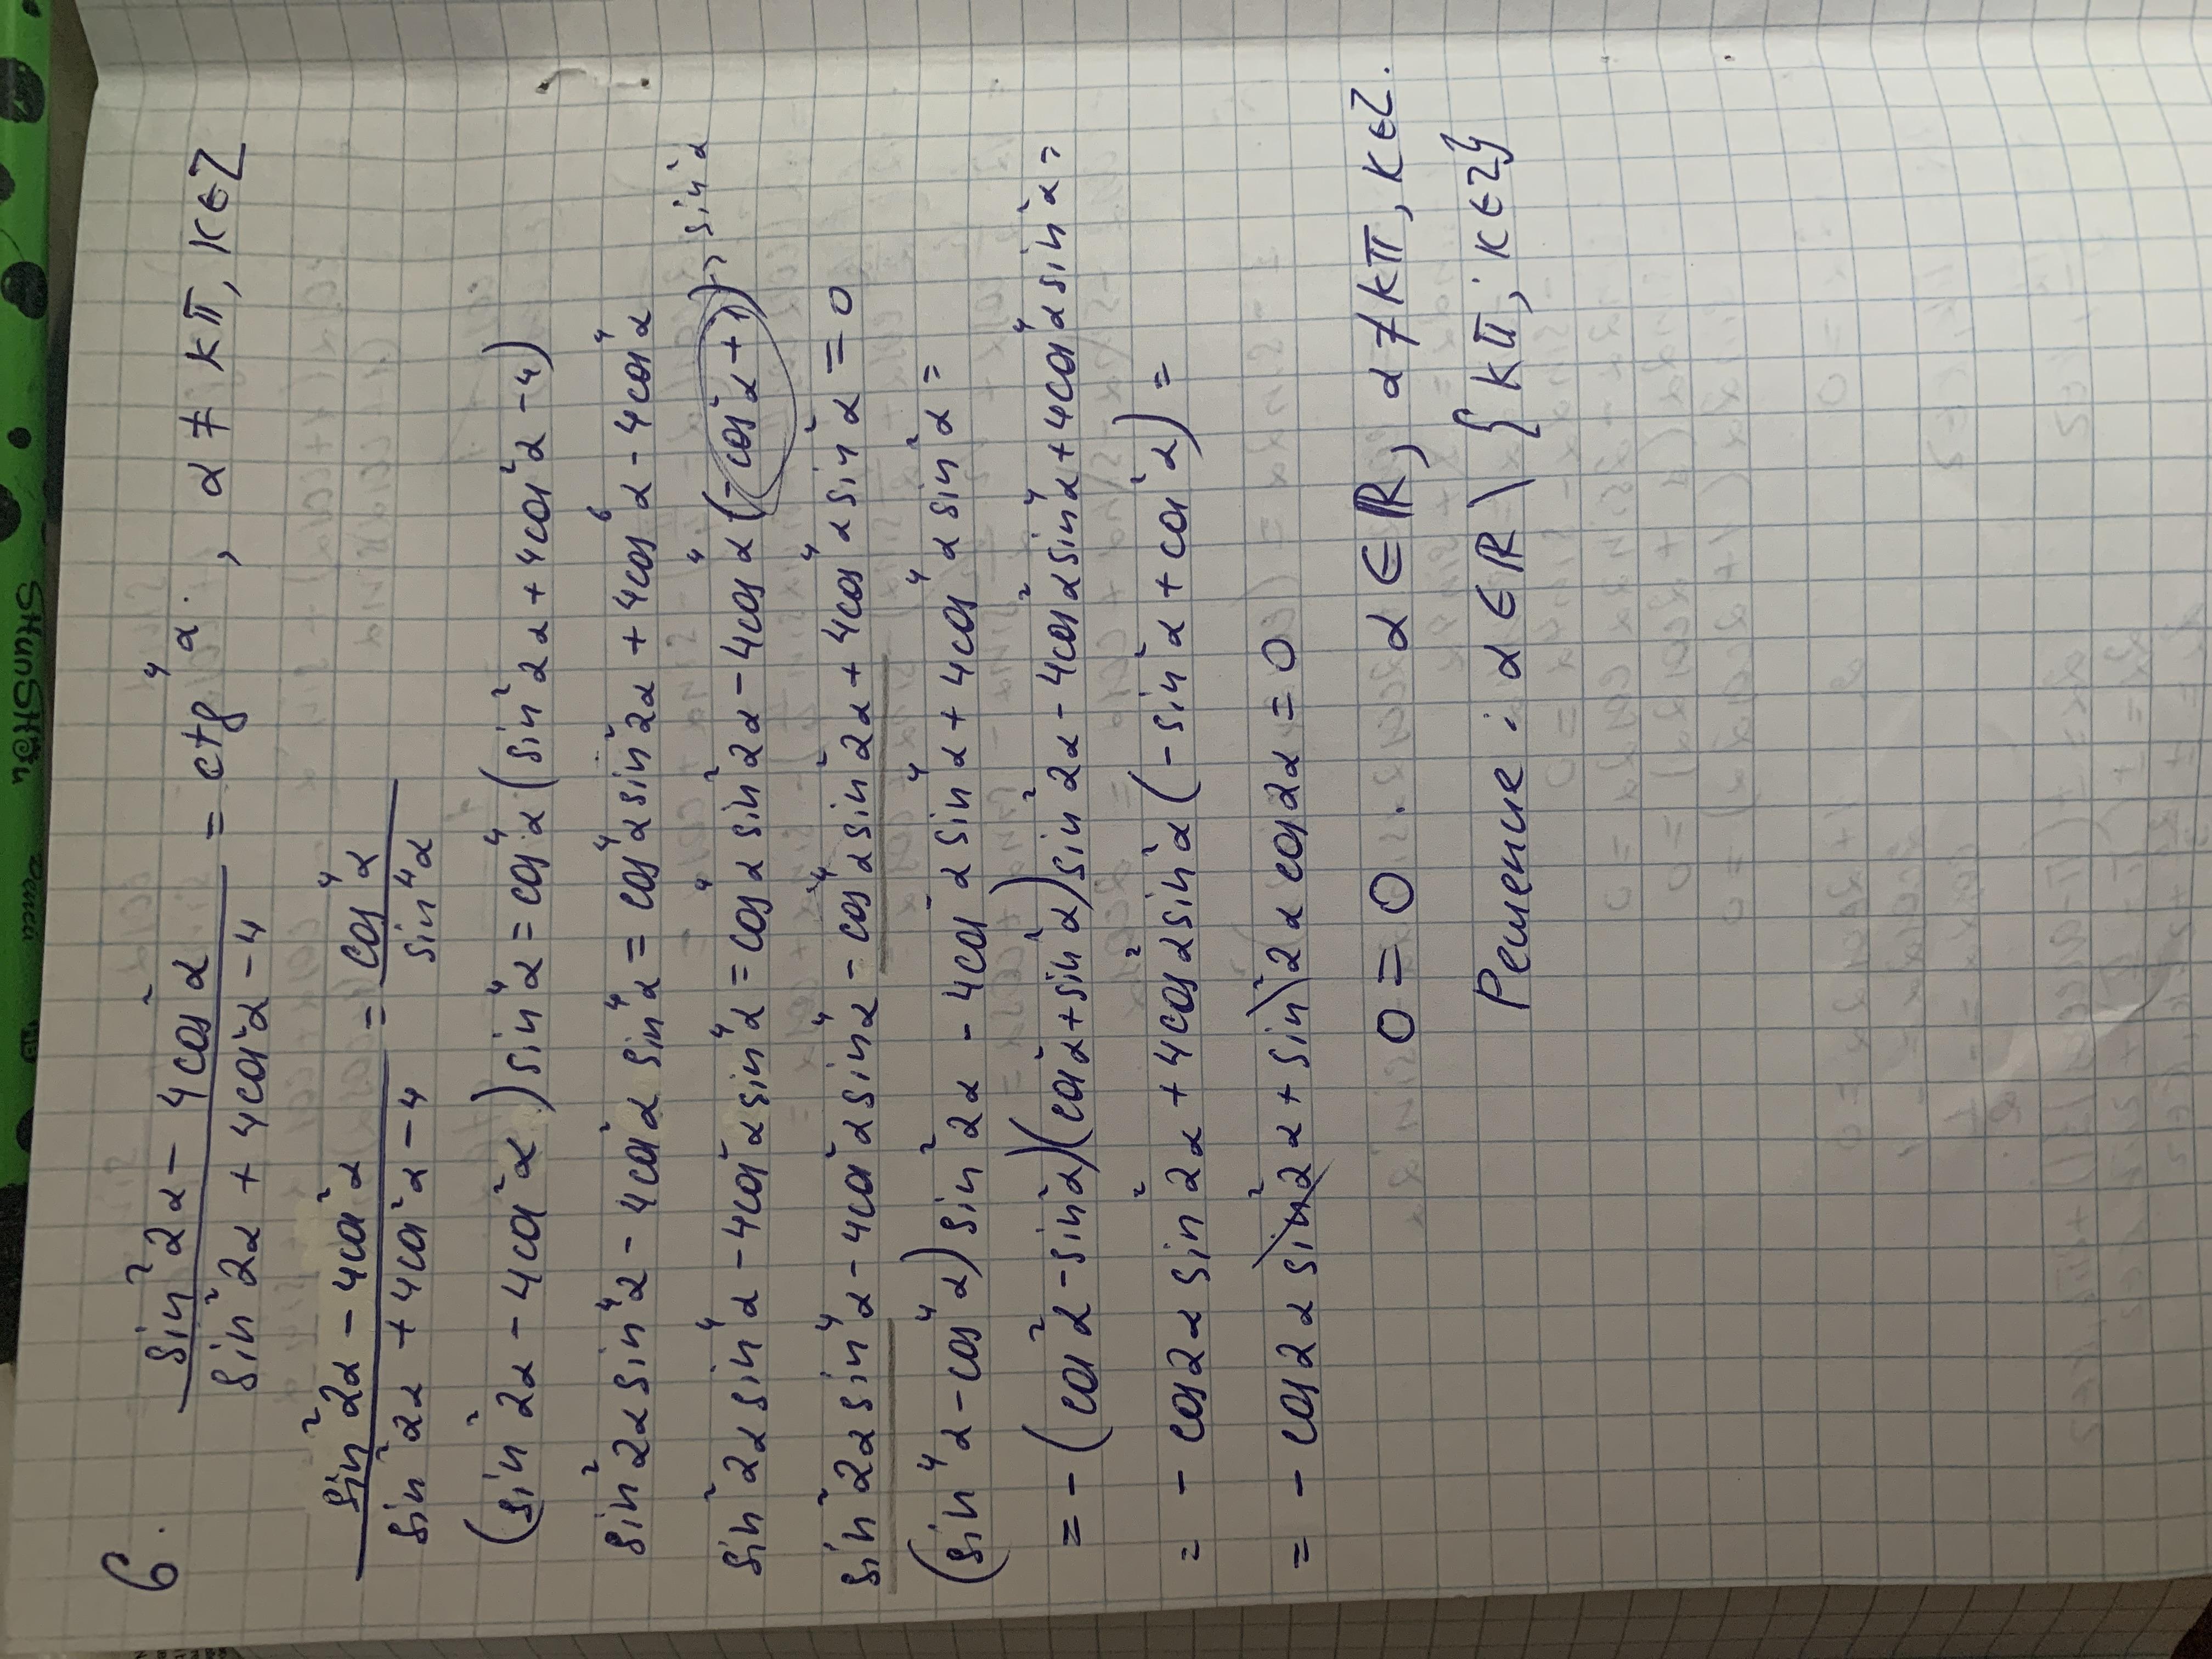 6. (sin²2α - 4cos²α)/(sin²2α + 4cos²α - 4) = ctg⁴α, α ≠ kπ, k∈Z
(sin²2α - 4cos²α)/(sin²2α + 4cos²α - 4) = cos⁴α/sin⁴α
(sin²2α - 4cos²α) sin⁴α = cos⁴α (sin²2α + 4cos²α - 4)
sin²2α sin⁴α - 4cos²α sin⁴α = cos⁴α sin²2α + 4cos⁶α - 4cos⁴α
sin²2α sin⁴α - 4cos²α sin⁴α = cos⁴α sin²2α - 4cos⁴α (-cos²α + 1) → sin²α
sin²2α sin⁴α - 4cos²α sin⁴α - cos⁴α sin²2α + 4cos⁴α sin²α = 0
(sin⁴α - cos⁴α) sin²2α - 4cos²α sin⁴α + 4cos⁴α sin²α =
= - (cos²α - sin²α)(cos²α + sin²α) sin²2α - 4cos²α sin⁴α + 4cos⁴α sin²α =
= - cos2α sin²2α + 4cos²α sin²α (- sin²α + cos²α) =
= - cos2α sin²2α + sin²2α cos2α = 0
0 = 0. α ∈ ℝ, α ≠ kπ, k∈Z.
Решение: α ∈ ℝ \ { kπ; k∈Z}
SHunSHou